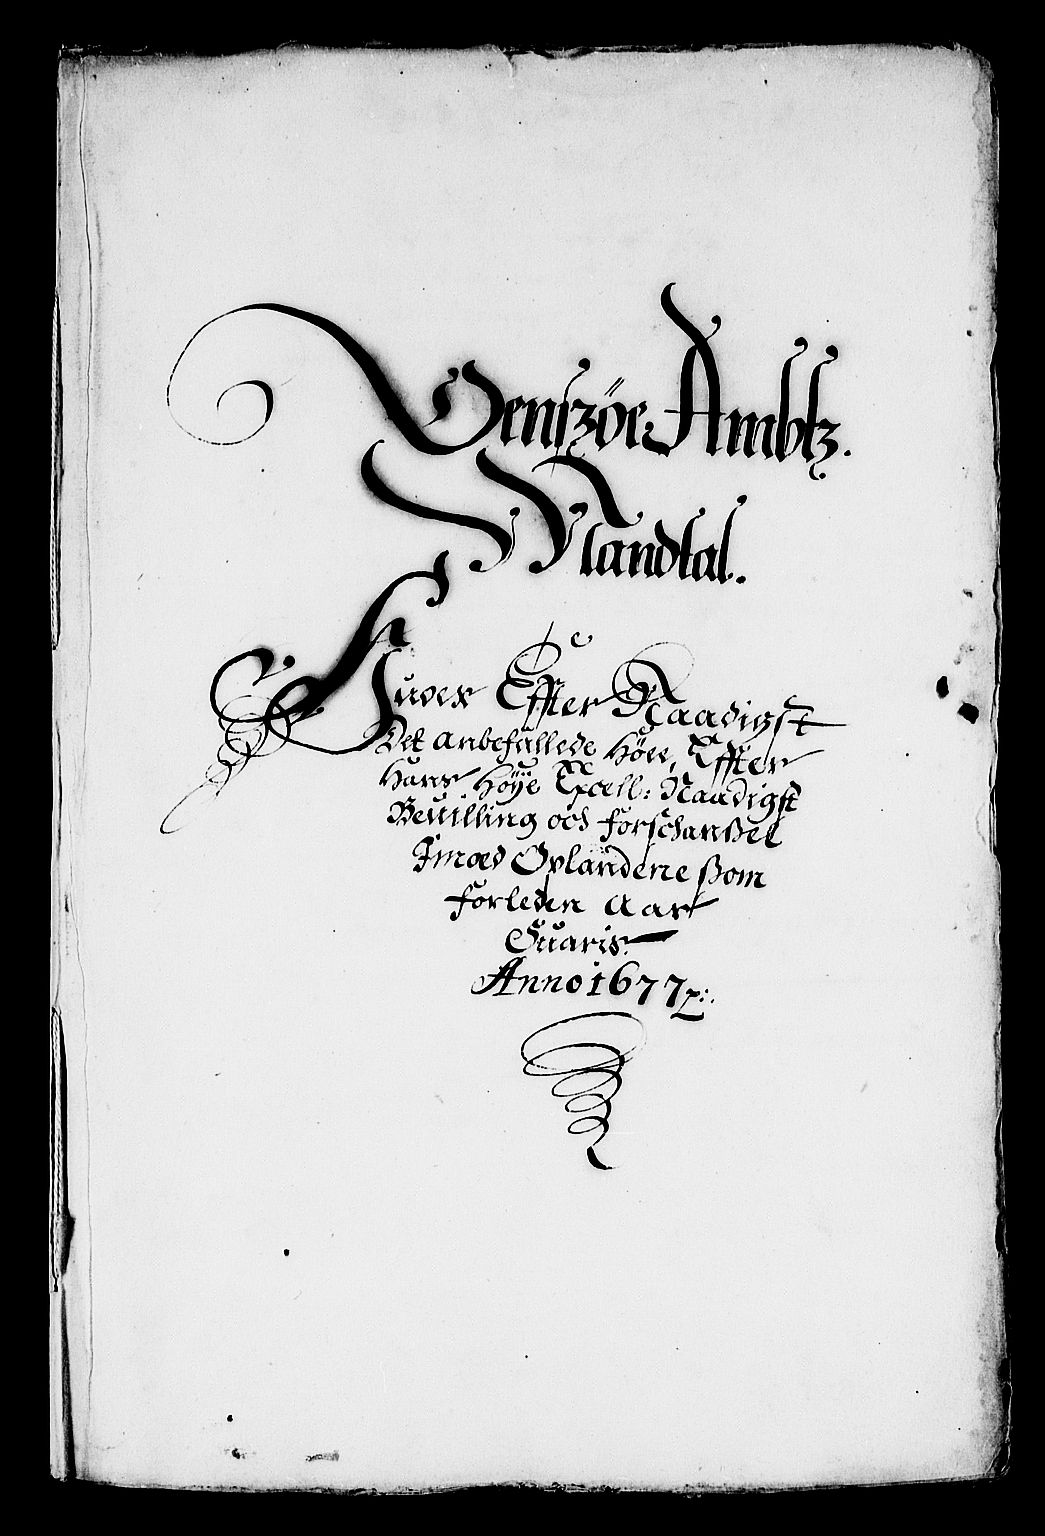 Senszøe Ambtz.
Mandtal.
Huorefter Naadigst
Det anbefallede Höie, Effter
Hans Höye Excell: Naadigst
Beuilling och forschaansel
Imoed Oplandene ßom
forleden Aar
Suaris.
Anno 1677 p:.